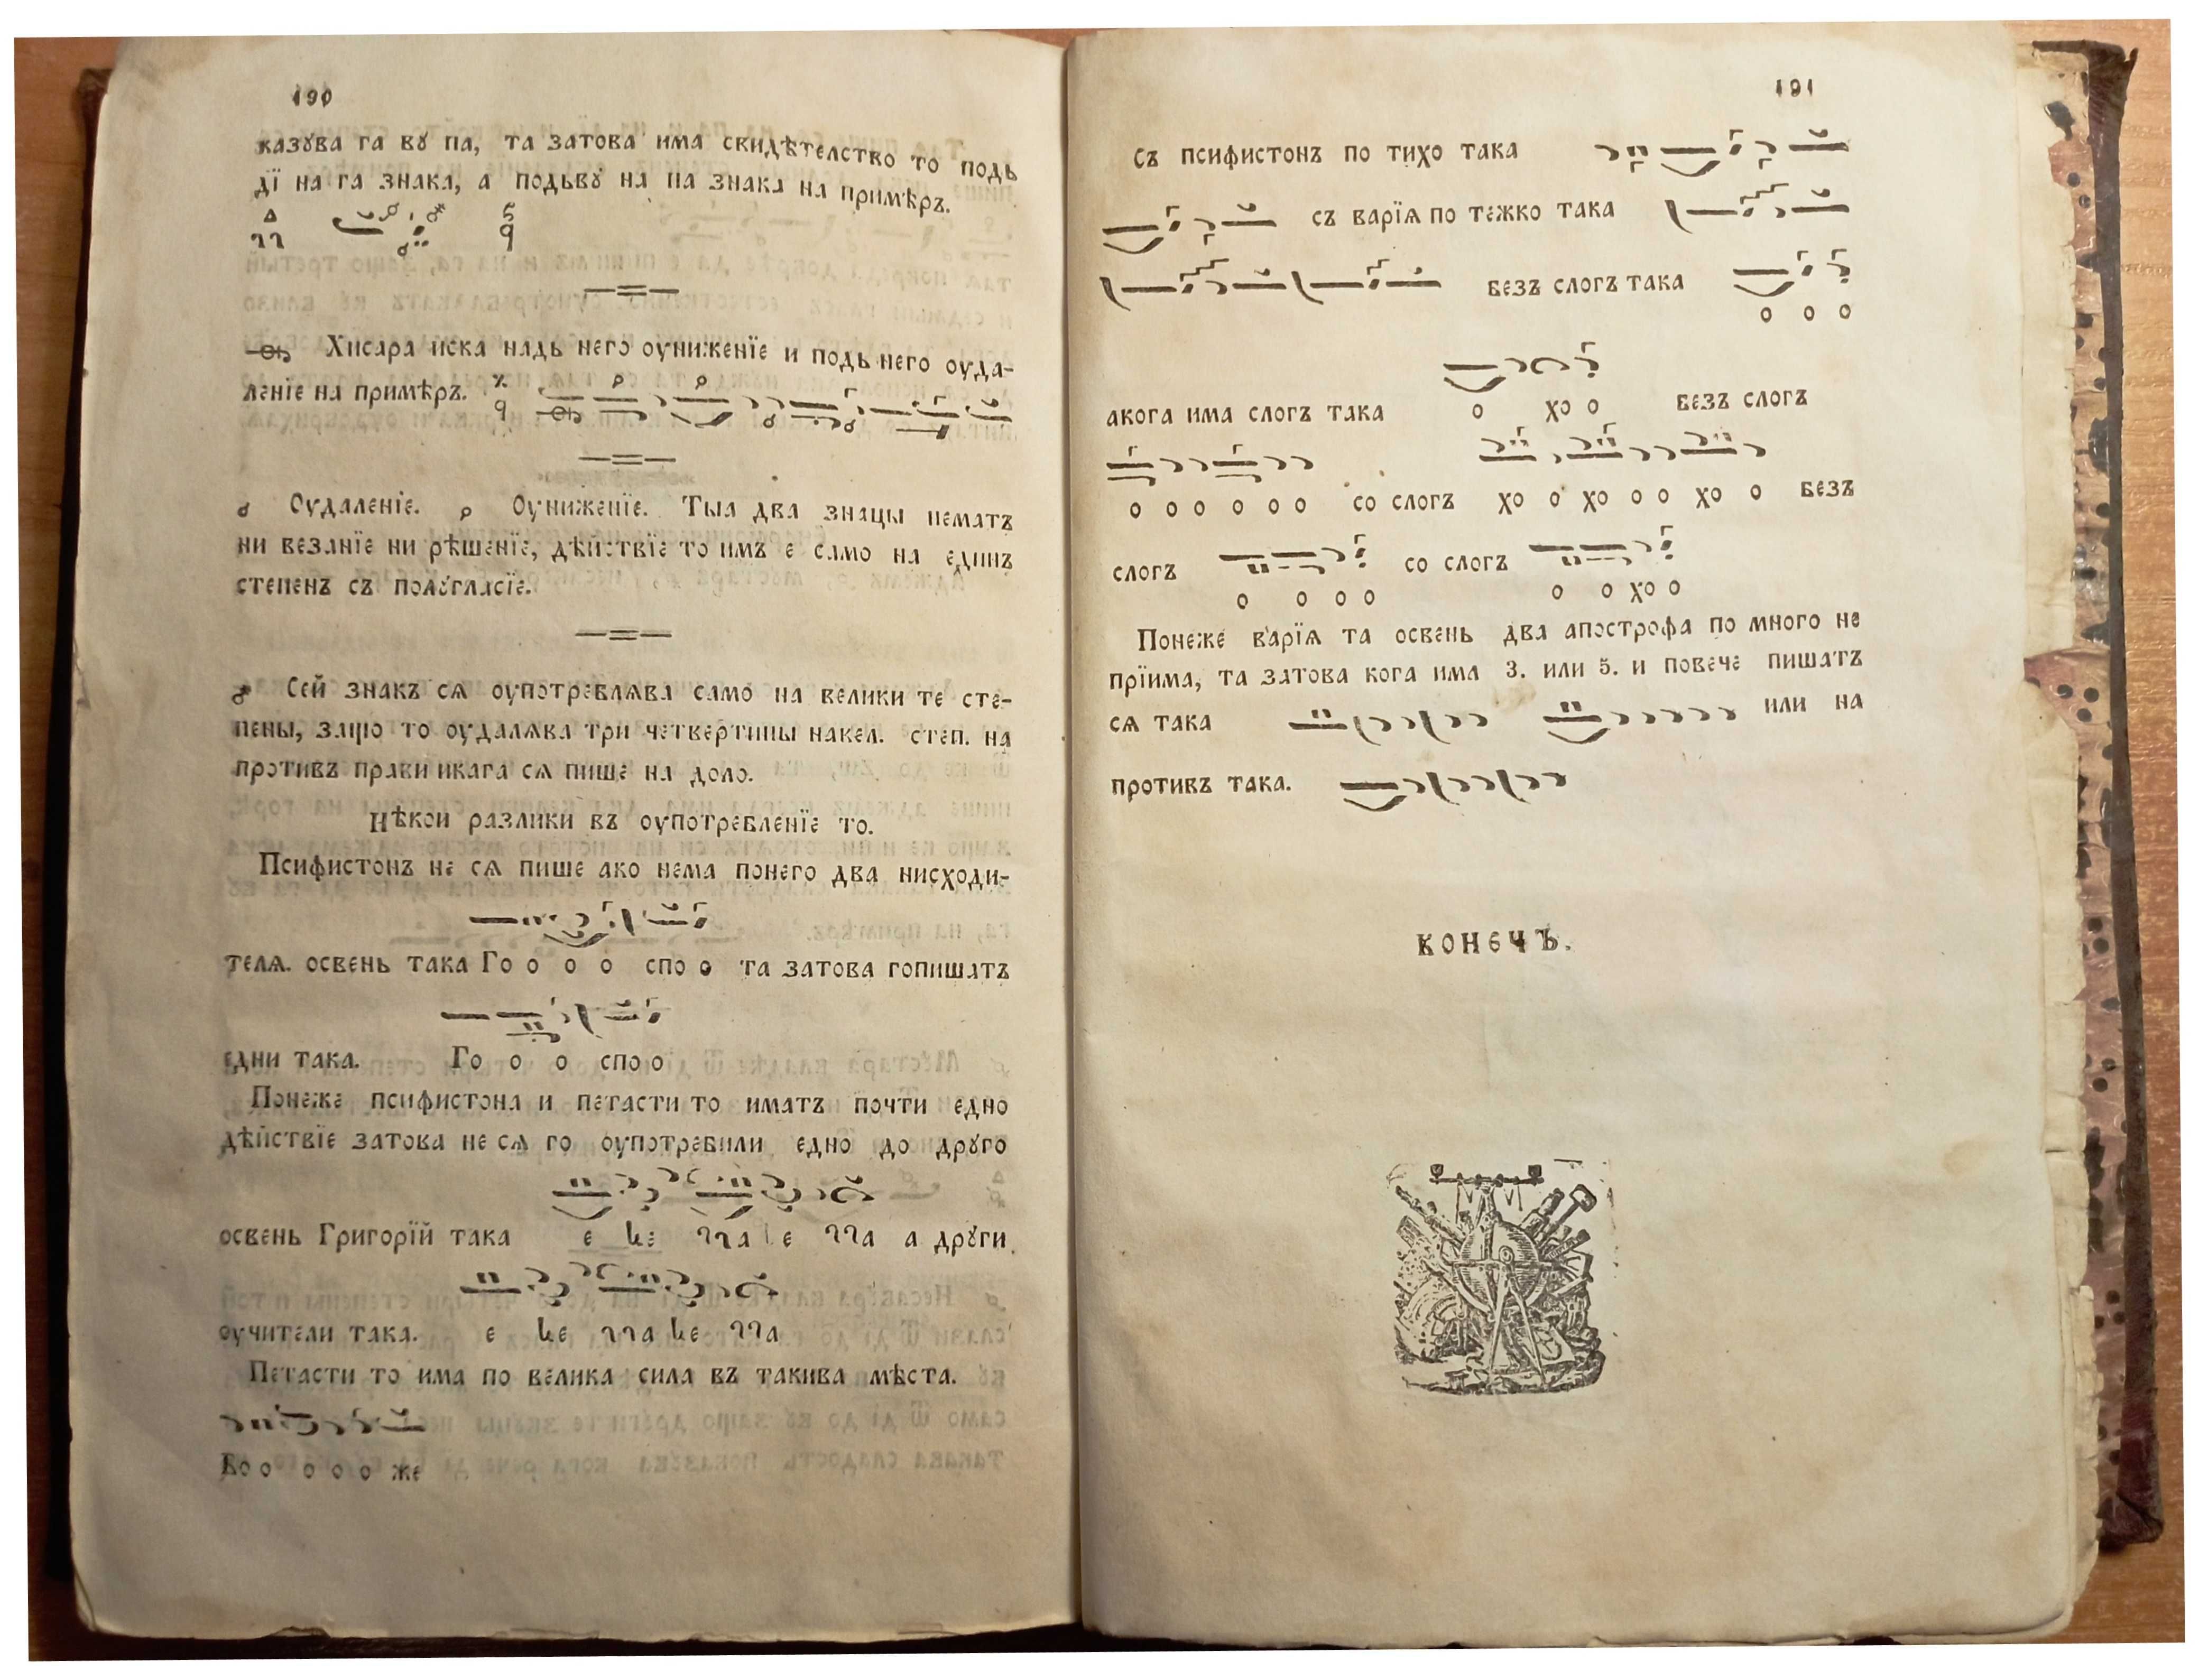 190
казꙋва га вꙋ па, та затова има свидѣтелство то подь
дї на га знака, а подьвꙋ на па знака на примѣръ.
Хисара иска надь него оуниженїе и подь него оуда-
ленїе на примѣръ.
Оудаленїе. Оуниженїе. Тыа два знацы немать
ни везанїе ни рѣшенїе, дѣйствїе то имъ е само на единъ
степенъ съ полꙋгласїе.
Сей знакъ сѧ оупотреблѧва само на велики те сте-
пены, защо то оудалѧва три четвертины накел. степ. на
противъ прави икага сѧ пише на доло.
Нѣкои разлики въ оупотребленїе то.
Псифистонъ не сѧ пише ако нема понего два нисходи-
телѧ. освень така Го о о о спо о та затова гопишатъ
едни така. Го о о спо о
Понеже псифистона и петасти то иматъ почти едно
дѣйствїе затова не сѧ го оупотребили едно до дрꙋго
освень Григорїй така е не ꙆꙆа е ꙆꙆа а дрꙋги
оучители така. е не ꙆꙆа не ꙆꙆа
Петасти то има по велика сила въ такива мѣста.
Бо о о о о же
191
Съ псифистонъ по тихо така
съ варїѧ по тежко така
безъ слогъ така
о о о
акога има слогъ така о хо о безъ слогъ
о о о о о о со слогъ хо о хо о о хо о безъ
слогъ со слогъ
о о о о о о хо о
Понеже варїѧ та освень два апострофа по много не
прїима, та затова кога има 3. или 5. и повече пишатъ
сѧ така или на
противъ така.
КОНЕЧЪ.